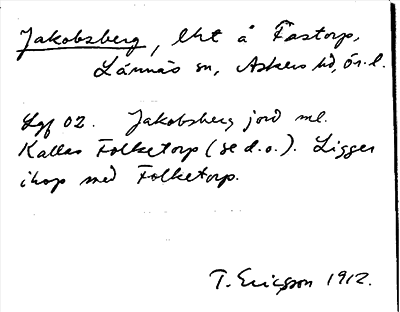 Jakobsberg, lht å Fastorp,
Lännäs sn, Askers hd, Ör. l.
Lgf 02. Jakobsberg jord ml.
Kallas Folketorp (se d.o.). Ligger
ihop med Folketorp.
T. Ericsson 1912.